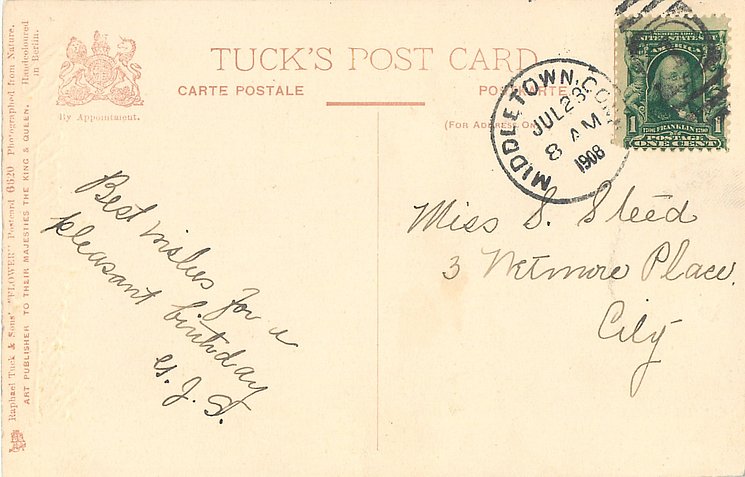 TUCK'S POST CARD
CARTE POSTALE
POSTKARTE
(FOR ADDRESS ON
By Appointment.
Raphael Tuck & Sons' "FLOWER" Postcard 6620 Photographed from Nature. Handcoloured in Berlin.
ART PUBLISHER TO THEIR MAJESTIES THE KING & QUEEN.
MIDDLETOWN, CONN
JUL 23
8 AM
1908
SERIES 1902
UNITED STATES
AMERICA
1 FRANKLIN 1
POSTAGE
ONE CENT
Best wishes for a
pleasant birthday
G. J. S.
Miss S. Steed
3 Wetmore Place.
City